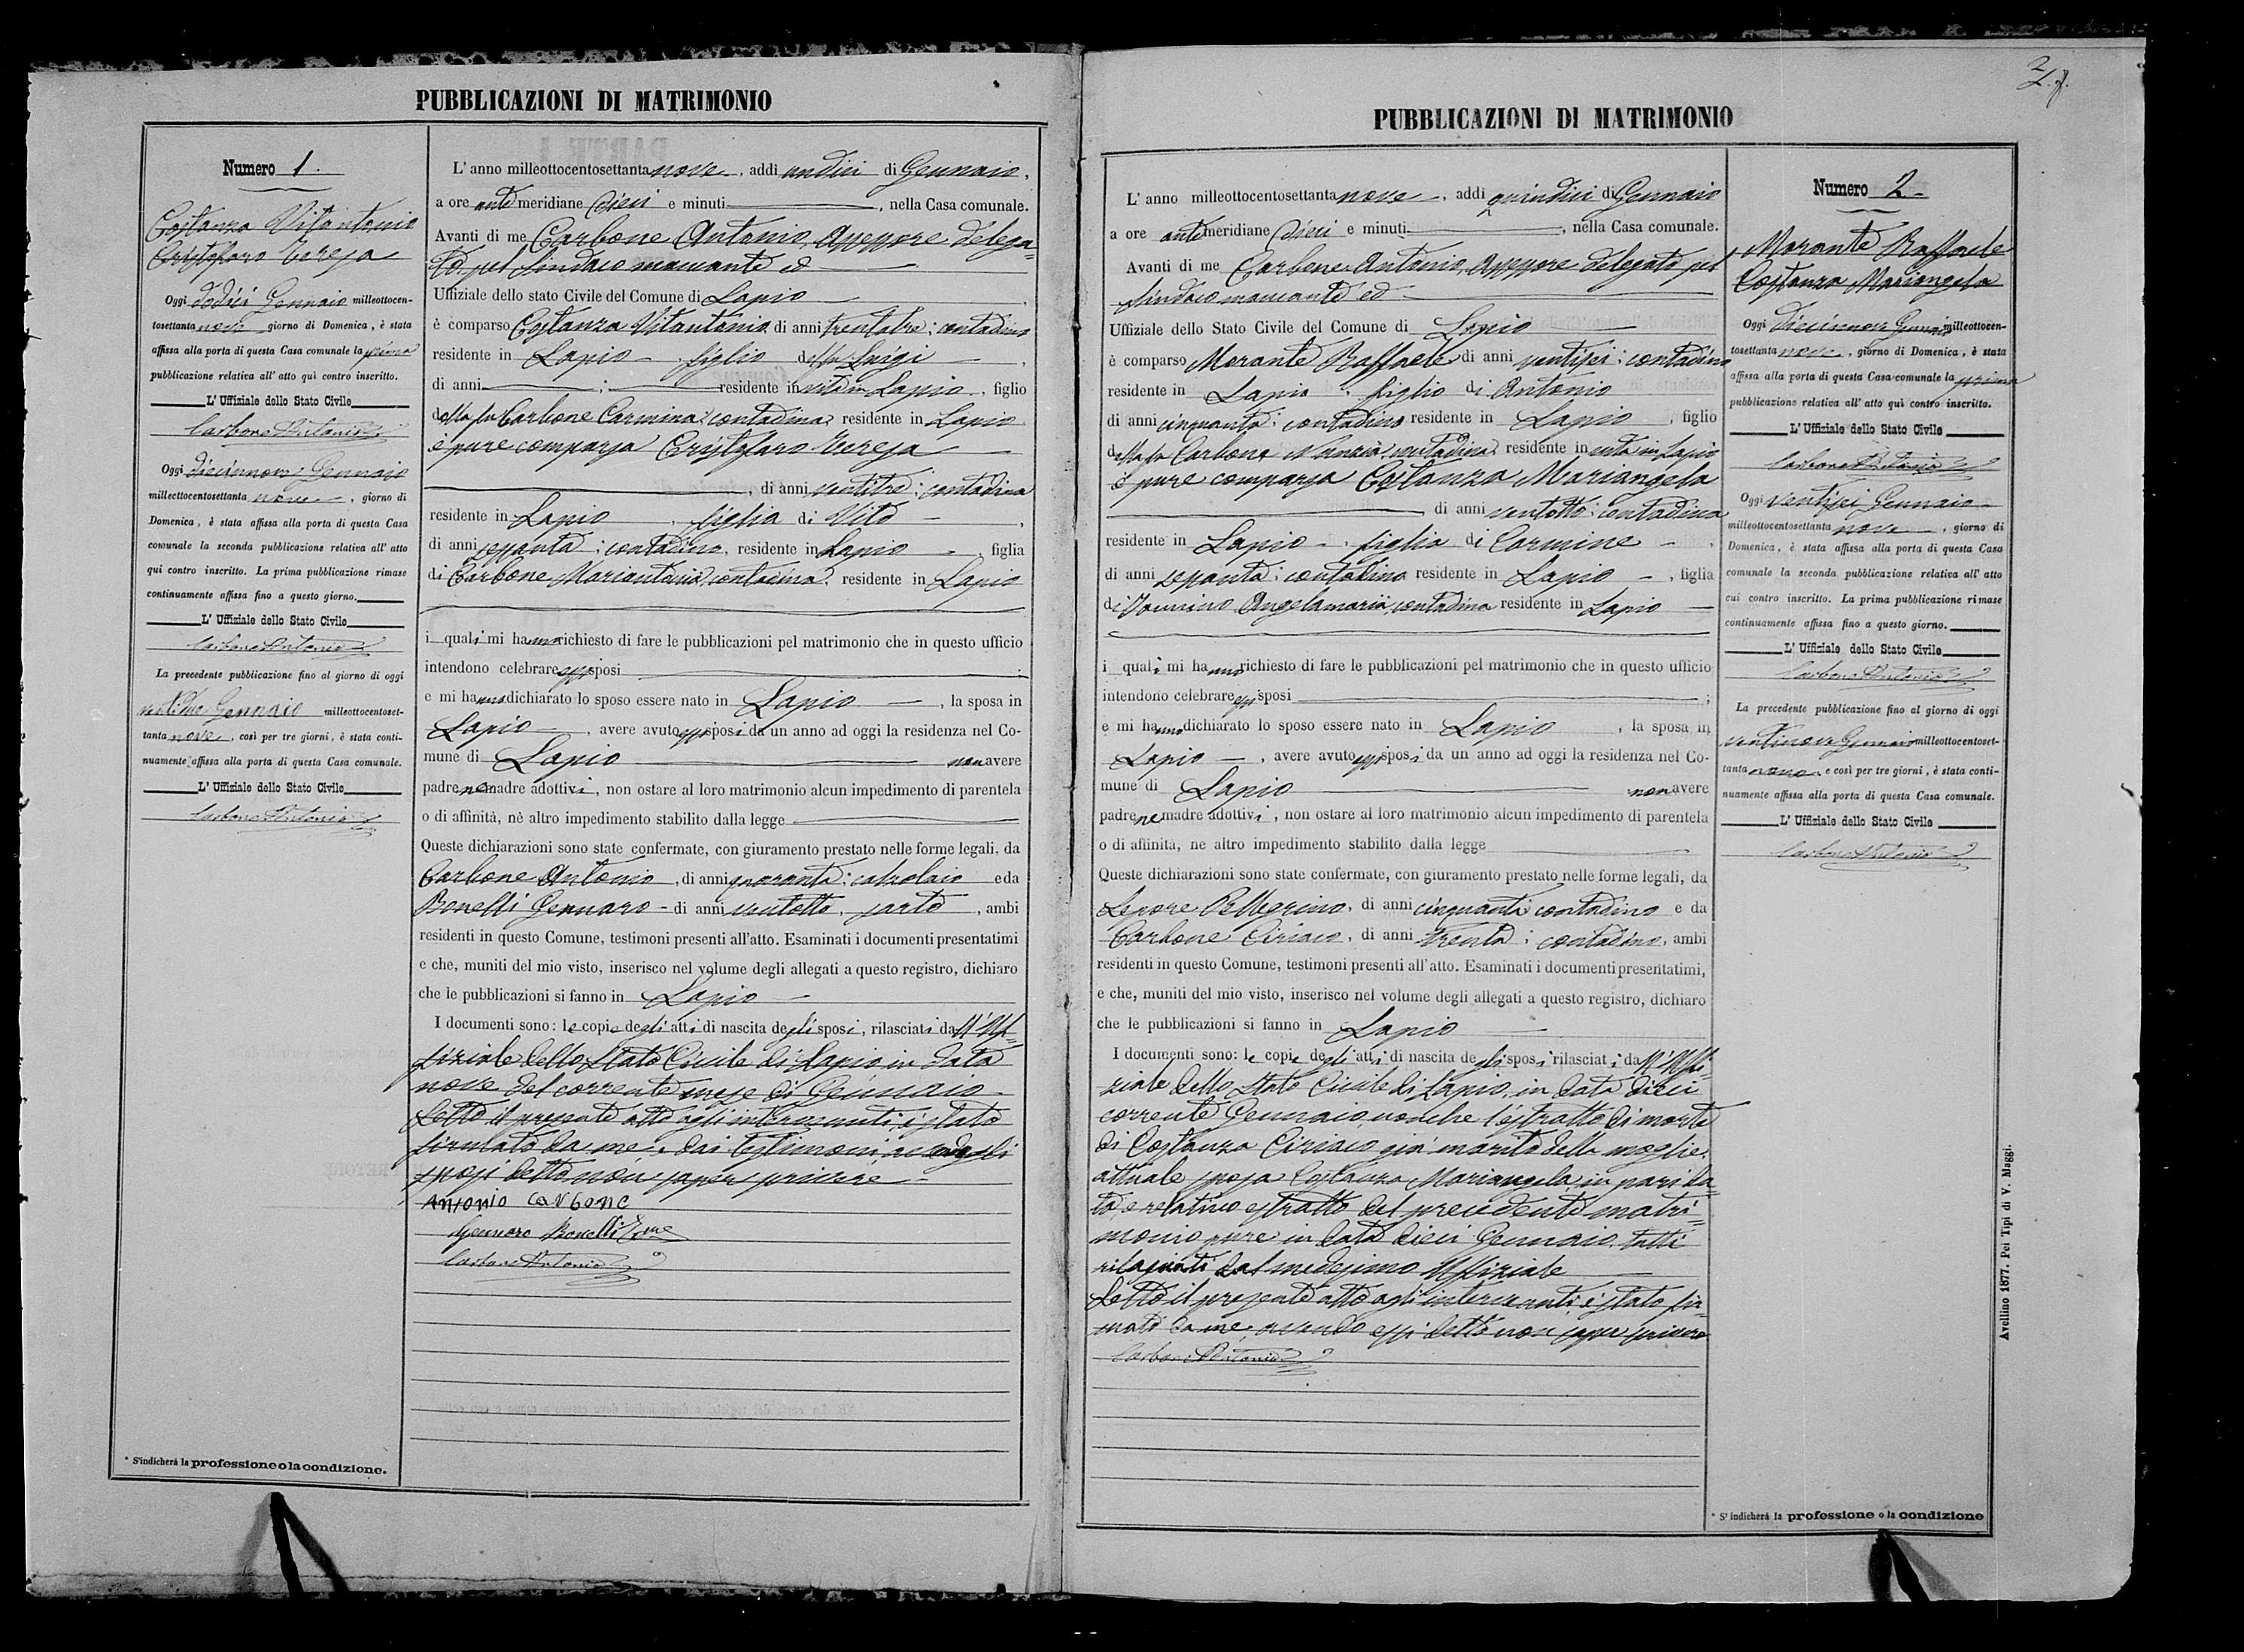 2.
PUBBLICAZIONI DI MATRIMONIO
Numero 1.
Costanza Vitantonio
Cristofaro Teresa
Oggi dodici Gennaio milleottocen-
tosettanta nove giorno di Domenica, è stata
affissa alla porta di questa Casa comunale la prima
pubblicazione relativa all' atto quì contro inscritto.
L' Uffiziale dello Stato Civile
Carbone Antonio
Oggi diecinnove Gennaio
milleottocentosettanta nove, giorno di
Domenica, è stata affissa alla porta di questa Casa
comunale la seconda pubblicazione relativa all' atto
qui contro inscritto. La prima pubblicazione rimase
continuamente affissa fino a questo giorno.
L' Uffiziale dello Stato Civile
Carbone Antonio
La precedente pubblicazione fino al giorno di oggi
Gennaio milleottocentoset-
tanta nove, così per tre giorni, è stata conti-
nuamente affissa alla porta di questa Casa comunale.
L' Uffiziale dello Stato Civile
Carbone Antonio
* S'indicherà la professione o la condizione.
L' anno milleottocentosettanta nove, addì undici di Gennaio,
a ore anti meridiane dieci e minuti , nella Casa comunale.
Avanti di me Carbone Antonio, Assessore delega=
to pel Sindaco mancante ed
Uffiziale dello stato Civile del Comune di Lapio ,
è comparso Costanza Vitantonio di anni trentatre; contadino
residente in Lapio, figlio del fu Luigi ,
di anni ; residente in vita in Lapio, figlio
della fu Carbone Carmina; contadina residente in Lapio
è pure comparsa Cristofaro Teresa
, di anni ventitre; contadina
residente in Lapio, figlia di Vito ,
di anni sessanta; contadino, residente in Lapio, figlia
di Carbone Mariantonia, contadina, residente in Lapio
i quali mi hanno richiesto di fare le pubblicazioni pel matrimonio che in questo ufficio
intendono celebrare essi sposi ;
e mi hanno dichiarato lo sposo essere nato in Lapio, la sposa in
Lapio, avere avuto essi sposi da un anno ad oggi la residenza nel Co-
mune di Lapio non avere
padre ne madre adottivi, non ostare al loro matrimonio alcun impedimento di parentela
o di affinità, nè altro impedimento stabilito dalla legge
Queste dichiarazioni sono state confermate, con giuramento prestato nelle forme legali, da
Carbone Antonio, di anni quaranta; calzolaio e da
Bonelli Gennaro di anni ventotto, sarto, ambi
residenti in questo Comune, testimoni presenti all'atto. Esaminati i documenti presentatimi
e che, muniti del mio visto, inserisco nel volume degli allegati a questo registro, dichiaro
che le pubblicazioni si fanno in Lapio
I documenti sono: le copie degli atti di nascita degli sposi, rilasciati dall'Uf=
fiziale dello Stato Civile di Lapio in data
nove del corrente mese di Gennaio
Letto il presente atto agli intervenuti, è stato
firmato da me e dai testimoni avendo gli
sposi detto non saper scrivere.
Antonio Carbone
Gennaro Bonelli Tne
Carbone Antonio
PUBBLICAZIONI DI MATRIMONIO
L' anno milleottocentosettanta nove, addì quindici di Gennaio
a ore anti meridiane dieci e minuti , nella Casa comunale.
Avanti di me Carbone Antonio, Assessore delegato pel
Sindaco mancante ed
Uffiziale dello Stato Civile del Comune di Lapio
è comparso Morante Raffaele di anni ventisei; contadino
residente in Lapio, figlio di Antonio
di anni cinquanta; contadino residente in Lapio, figlio
della fu Carbone Nunzia, contadina, residente in vita in Lapio
è pure comparsa Costanza Mariangela
, di anni ventotto; contadina
residente in Lapio, figlia di Carmine ,
di anni sessanta; contadino residente in Lapio, figlia
di Angelamaria, contadina residente in Lapio
i quali mi hanno richiesto di fare le pubblicazioni pel matrimonio che in questo ufficio
intendono celebrare essi sposi ;
e mi hanno dichiarato lo sposo essere nato in Lapio, la sposa in
Lapio, avere avuto essi sposi da un anno ad oggi la residenza nel Co-
mune di Lapio non avere
padre ne madre adottivi, non ostare al loro matrimonio alcun impedimento di parentela
o di affinità, ne altro impedimento stabilito dalla legge
Queste dichiarazioni sono state confermate, con giuramento prestato nelle forme legali, da
Lepore Pellegrino, di anni cinquanta contadino e da
Carbone Ciriaco, di anni trenta; contadino, ambi
residenti in questo Comune, testimoni presenti all'atto. Esaminati i documenti presentatimi,
e che, muniti del mio visto, inserisco nel volume degli allegati a questo registro, dichiaro
che le pubblicazioni si fanno in Lapio
I documenti sono: le copie degli atti di nascita degli sposi rilasciati dall'Uffi=
ziale dello Stato Civile di Lapio, in data dieci
corrente Gennaio, nonche l'estratto di morte
di Costanza Ciriaco già marito della moglie,
attuale sposa Costanza Mariangela, in pari da=
ta, e relativo estratto del precedente matri=
monio pure in data dieci Gennaio, tutti
rilasciati dal medesimo Uffiziale
Letto il presente atto agli intervenuti, è stato fir=
mato da me, avendo essi detto non saper scrivere
Carbone Antonio
Numero 2
Morante Raffaele
Costanza Mariangela
Oggi diecinnove Gennaio milleottocen-
tosettanta nove, giorno di Domenica, è stata
affissa alla porta di questa Casa comunale la prima
pubblicazione relativa all' atto quì contro inscritto.
L' Uffiziale dello Stato Civile
Carbone Antonio
Oggi ventisei Gennaio
milleottocentosettanta nove, giorno di
Domenica, è stata affissa alla porta di questa Casa
comunale la seconda pubblicazione relativa all' atto
cui contro inscritto. La prima pubblicazione rimase
continuamente affissa fino a questo giorno.
L' Uffiziale dello Stato Civile
Carbone Antonio
La precedente pubblicazione fino al giorno di oggi
ventinove Gennaio milleottocentoset-
tanta nove e così per tre giorni, è stata conti-
nuamente affissa alla porta di questa Casa comunale.
L' Uffiziale dello Stato Civile
Carbone Antonio
* S' indicherà la professione o la condizione
Avellino 1877. Pei Tipi di V. Maggi.